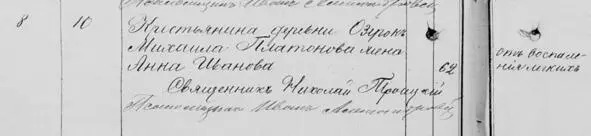 8 10 Крестьянина деревни Озерокъ
Михаила Платонова жена
Анна Иванова 62 отъ воспале-
нія легкихъ
Священникъ Николай Троицкій
Псаломщикъ Иванъ